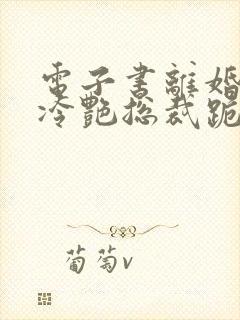 電子書離婚
冷艷总裁跪
葡萄v